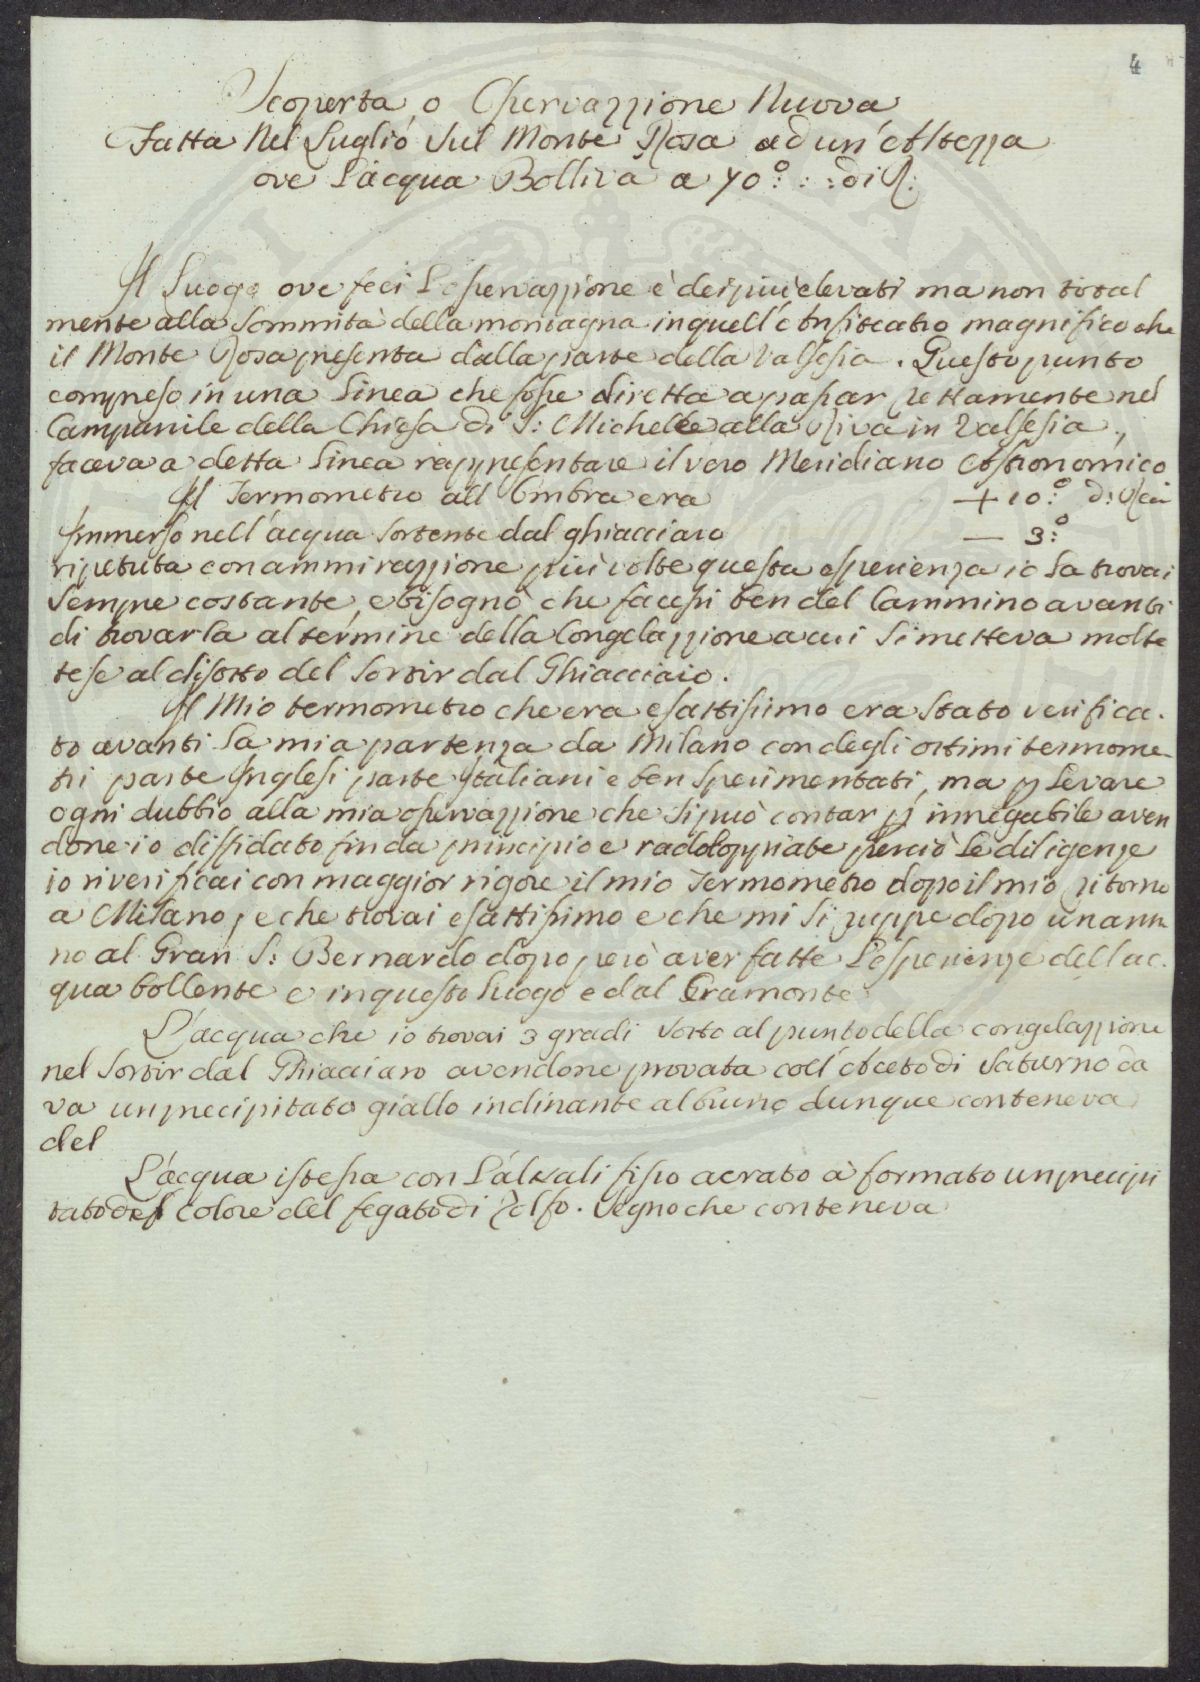 4
Scoperta, o Osservazzione Nuova
Fatta Nel Luglio Sul Monte Rosa ad un'Altezza
ove L'acqua Bolliva a 70°: : : di R:
Il Luogo ove feci L'osservazzione è dei più elevati ma non total
mente alla Sommità della montagna in quell'Anfiteatro magnifico che
il Monte Rosa presenta dalla parte della Valsesia. Questo punto
compreso in una Linea che fosse diretta a passar rettamente nel
Campanile della Chiesa di S: Michele alla Riva in Valsesia,
faceva a detta Linea rappresentare il vero Meridiano Astronomico
Il Termometro all'Ombra era + 10°: di Rea
Immerso nell'acqua sortente dal ghiacciaro — 3°:
ripetuta con ammirazzione più volte questa esperienza io La trovai
Sempre costante, e bisognò che facessi ben del Cammino avanti
di trovarla al termine della Congelazzione a cui Si metteva molte
tese al disotto del Sortir dal Ghiacciaio.
Il Mio termometro che era esattissimo era Stato verifica.
to avanti La mia partenza da Milano con degli ottimi termome
tri parte Inglesi parte Italiani e ben Sperimentati, ma p Levare
ogni dubbio alla mia osservazzione che Si può contar p innegabile aven
done io diffidato fin da principio e raddoppiate perciò Le diligenze
io riverificai con maggior rigore il mio Termometro dopo il mio ritorno
a Milano, e che trovai esattissimo e che mi Si ruppe dopo un an
no al Gran S: Bernardo dopo però aver fatte L'esperienze dell'ac.
qua bollente e in questo Luogo e dal Cramonte
L'acqua che io trovai 3 gradi Sotto al punto della congelazzione
nel Sortir dal Ghiacciaro avendone provata coll'Aceto di Saturno da
va un precipitato giallo inclinante al bruno dunque conteneva
del
L'acqua istessa con L'alkali fisso aerato à formato un precipi
tato del colore del fegato di Zolfo. Segno che conteneva